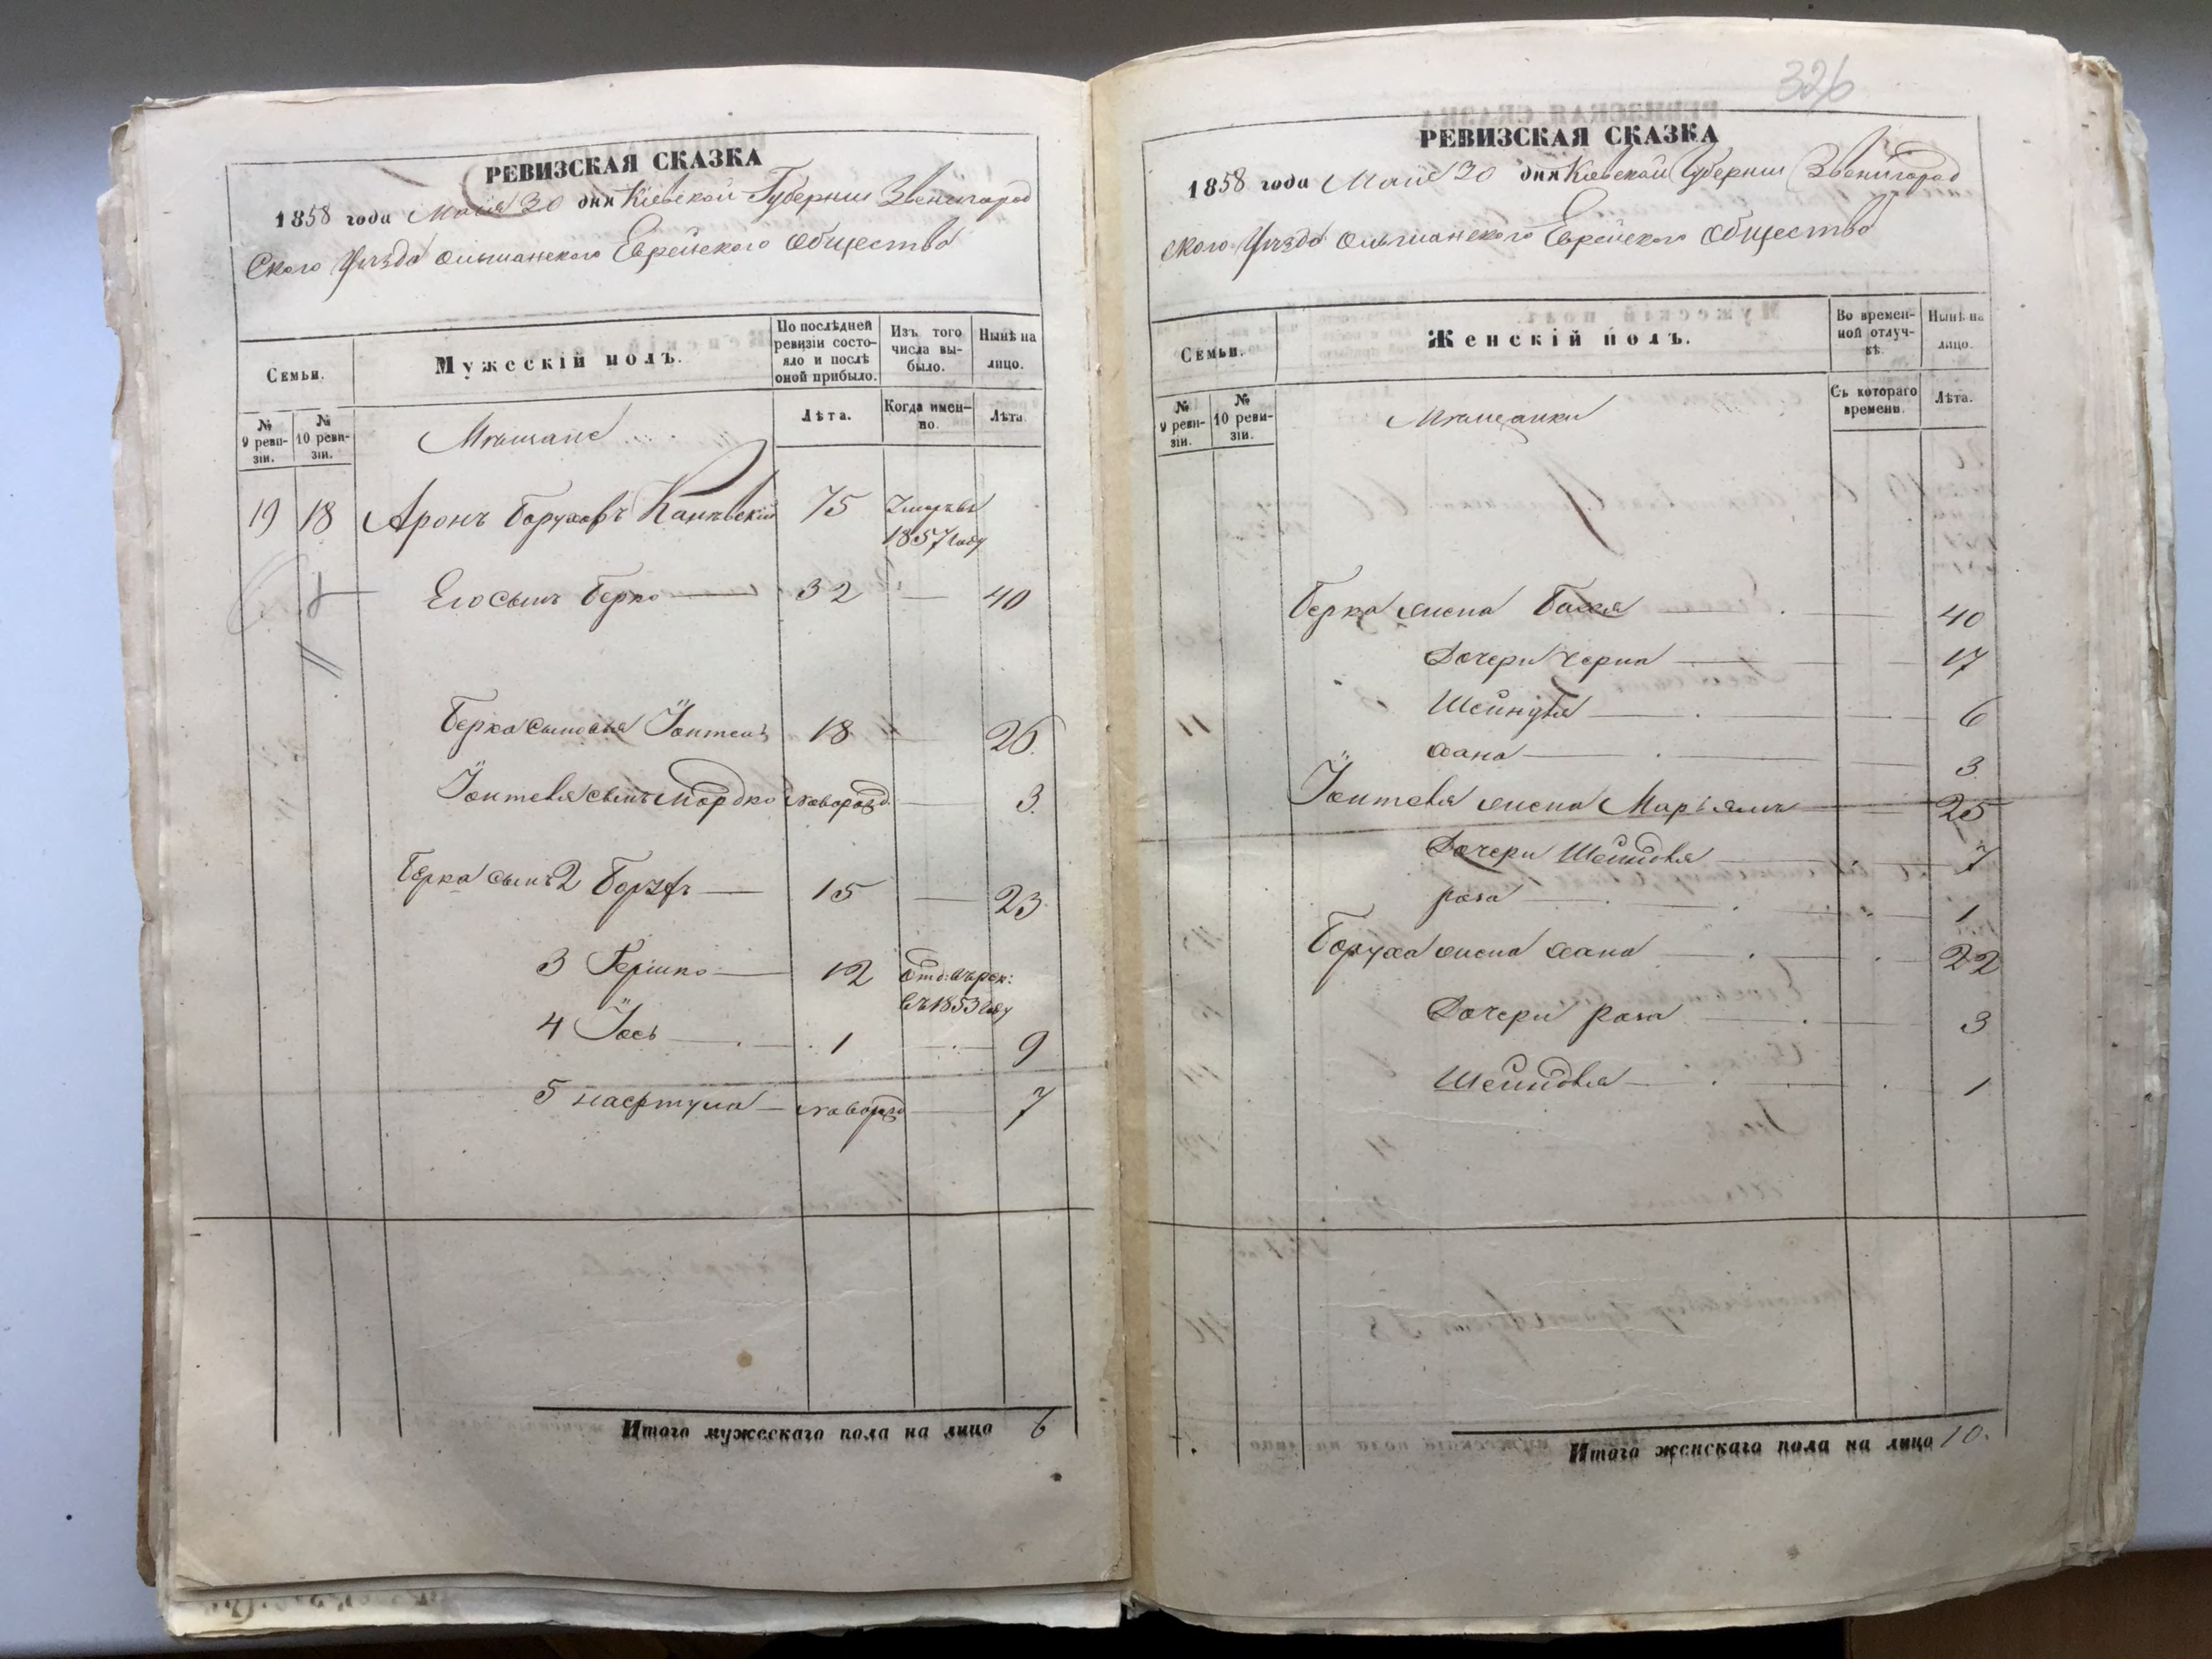 РЕВИЗСКАЯ СКАЗКА
1858 года Маія 30 дня Кіевской Губерніи Звенигород
ского Уѣзда Ольшанского Еврейского Общества
Семьи.
Мужескій полъ.
По послѣдней ревизіи состояло и послѣ оной прибыло.
Изъ того числа выбыло.
Нынѣ на лицо.
№ 9 ревизіи.
№ 10 ревизіи.
Мѣщане
Лѣта.
Когда именно.
Лѣта
19 18 Аронъ Боруховъ Каневскій 75 Умеръ въ
1857 году
Его сынъ Берко 32 — 40
Берка сыновья Іонтель 18 — 26.
Іонтеля сынъ Мордко новорожд. — 3.
Берка сынъ 2 Борухъ 15 — 23.
3 Гершко 12 Отд: въ рек:
въ 1853 году
4 Іось 1 — 9
5 новорожд — 7
Итого мужескаго пола на лицо 6
326
РЕВИЗСКАЯ СКАЗКА
1858 года Маія 30 дня Кіевской Губерніи Звенигород
ского Уѣзда Ольшанского Еврейского Общества
Семьи.
Женскій полъ.
Во временной отлучкѣ.
Нынѣ на лицо.
№ 9 ревизіи.
№ 10 ревизіи.
Мѣщанки
Съ котораго времени.
Лѣта.
Берка жена Бася 40
Дочери Черна 17
6
Хана 3
Іонтеля жена Марьямъ 25
Дочери Шейндля 7
Роза 1
Боруха жена Хана 22
Дочери Роза 3
Шейндля 1
Итого женскаго пола на лицо 10.